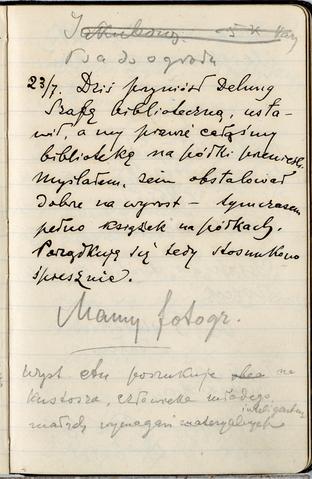 Psa do ogrodu
23/7. Dziś przyniósł Delung
szafę biblioteczną, usta-
wił, a my prawie całą
bibliotekę na półki przenieśli.
Myślałem, żem obstalował
dobre na wyrost – tymczasem
pełno książek na półkach.
Porządkuję się tedy stosunkowo
śpiesznie.
Mamy fotogr.
poszukuje na
kustosza, człowieka młodego,
inteligentn
małych wymagań materyalnych